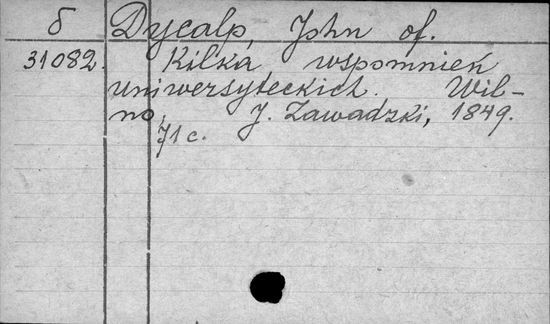 б Dycalp, John of.
31082. Kilka wspomnień
uniwersyteckich. Wil-
no, J. Zawadzki, 1849.
71 c.